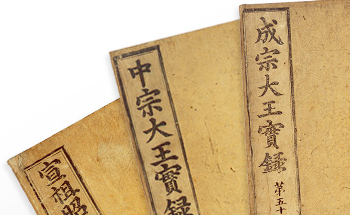 成宗大王實錄
第五十
中宗大王實錄
宣祖昭